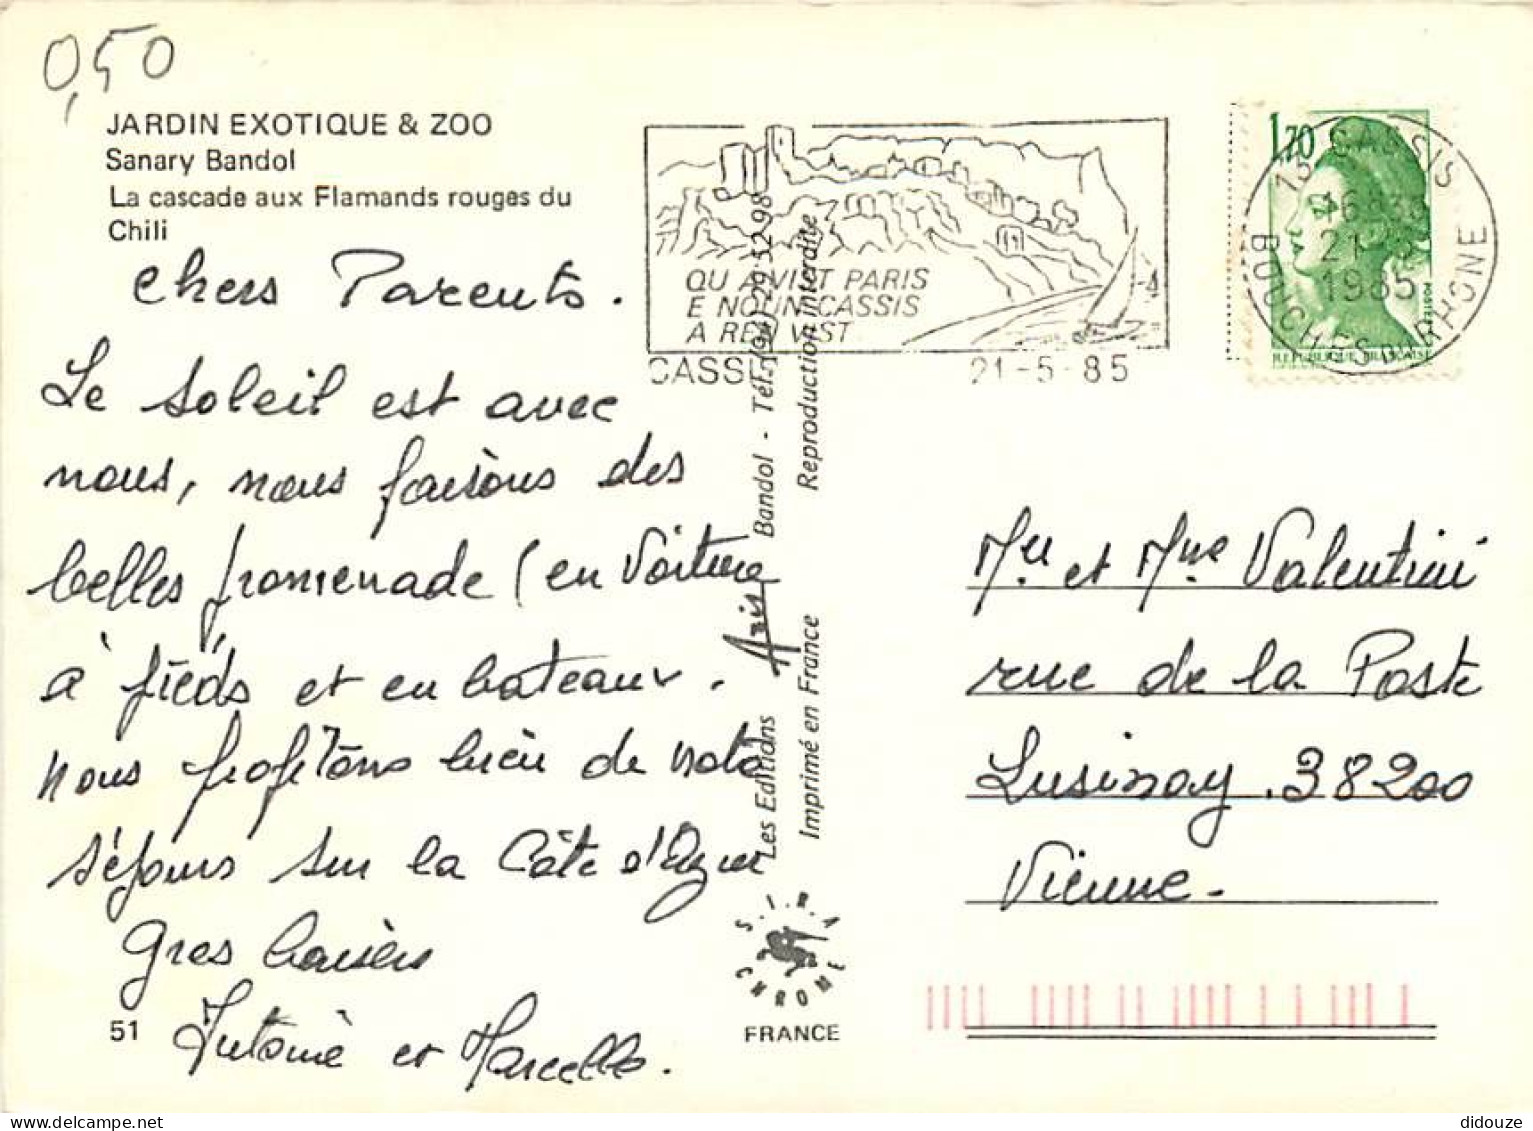 0,50
JARDIN EXOTIQUE & ZOO
Sanary Bandol
La cascade aux Flamands rouges du
Chili
Chers Parents.
Le soleil est avec
nous, nous faisons des
belles promenade (en Voiture
à pieds et en bateaux.
Nous profitons bien de notre
séjours sur la Côte d'Azur
Gros baisers
Antoine et Marcelle.
51
QU A VIST PARIS
E NOUN CASSIS
A REN VIST
CASSIS
21-5-85
1,70
13 CASSIS
16H
21-5
1985
BOUCHES DU RHONE
POSTES
REPUBLIQUE FRANÇAISE
Les Editions Aris Bandol - Tél. (94) 29 52 98
Imprimé en France Reproduction interdite
S.I.R.A
CHROME
FRANCE
Mr et Mme Valentini
rue de la Poste
Lusinay. 38200
Vienne.
delcampe.net
didouze